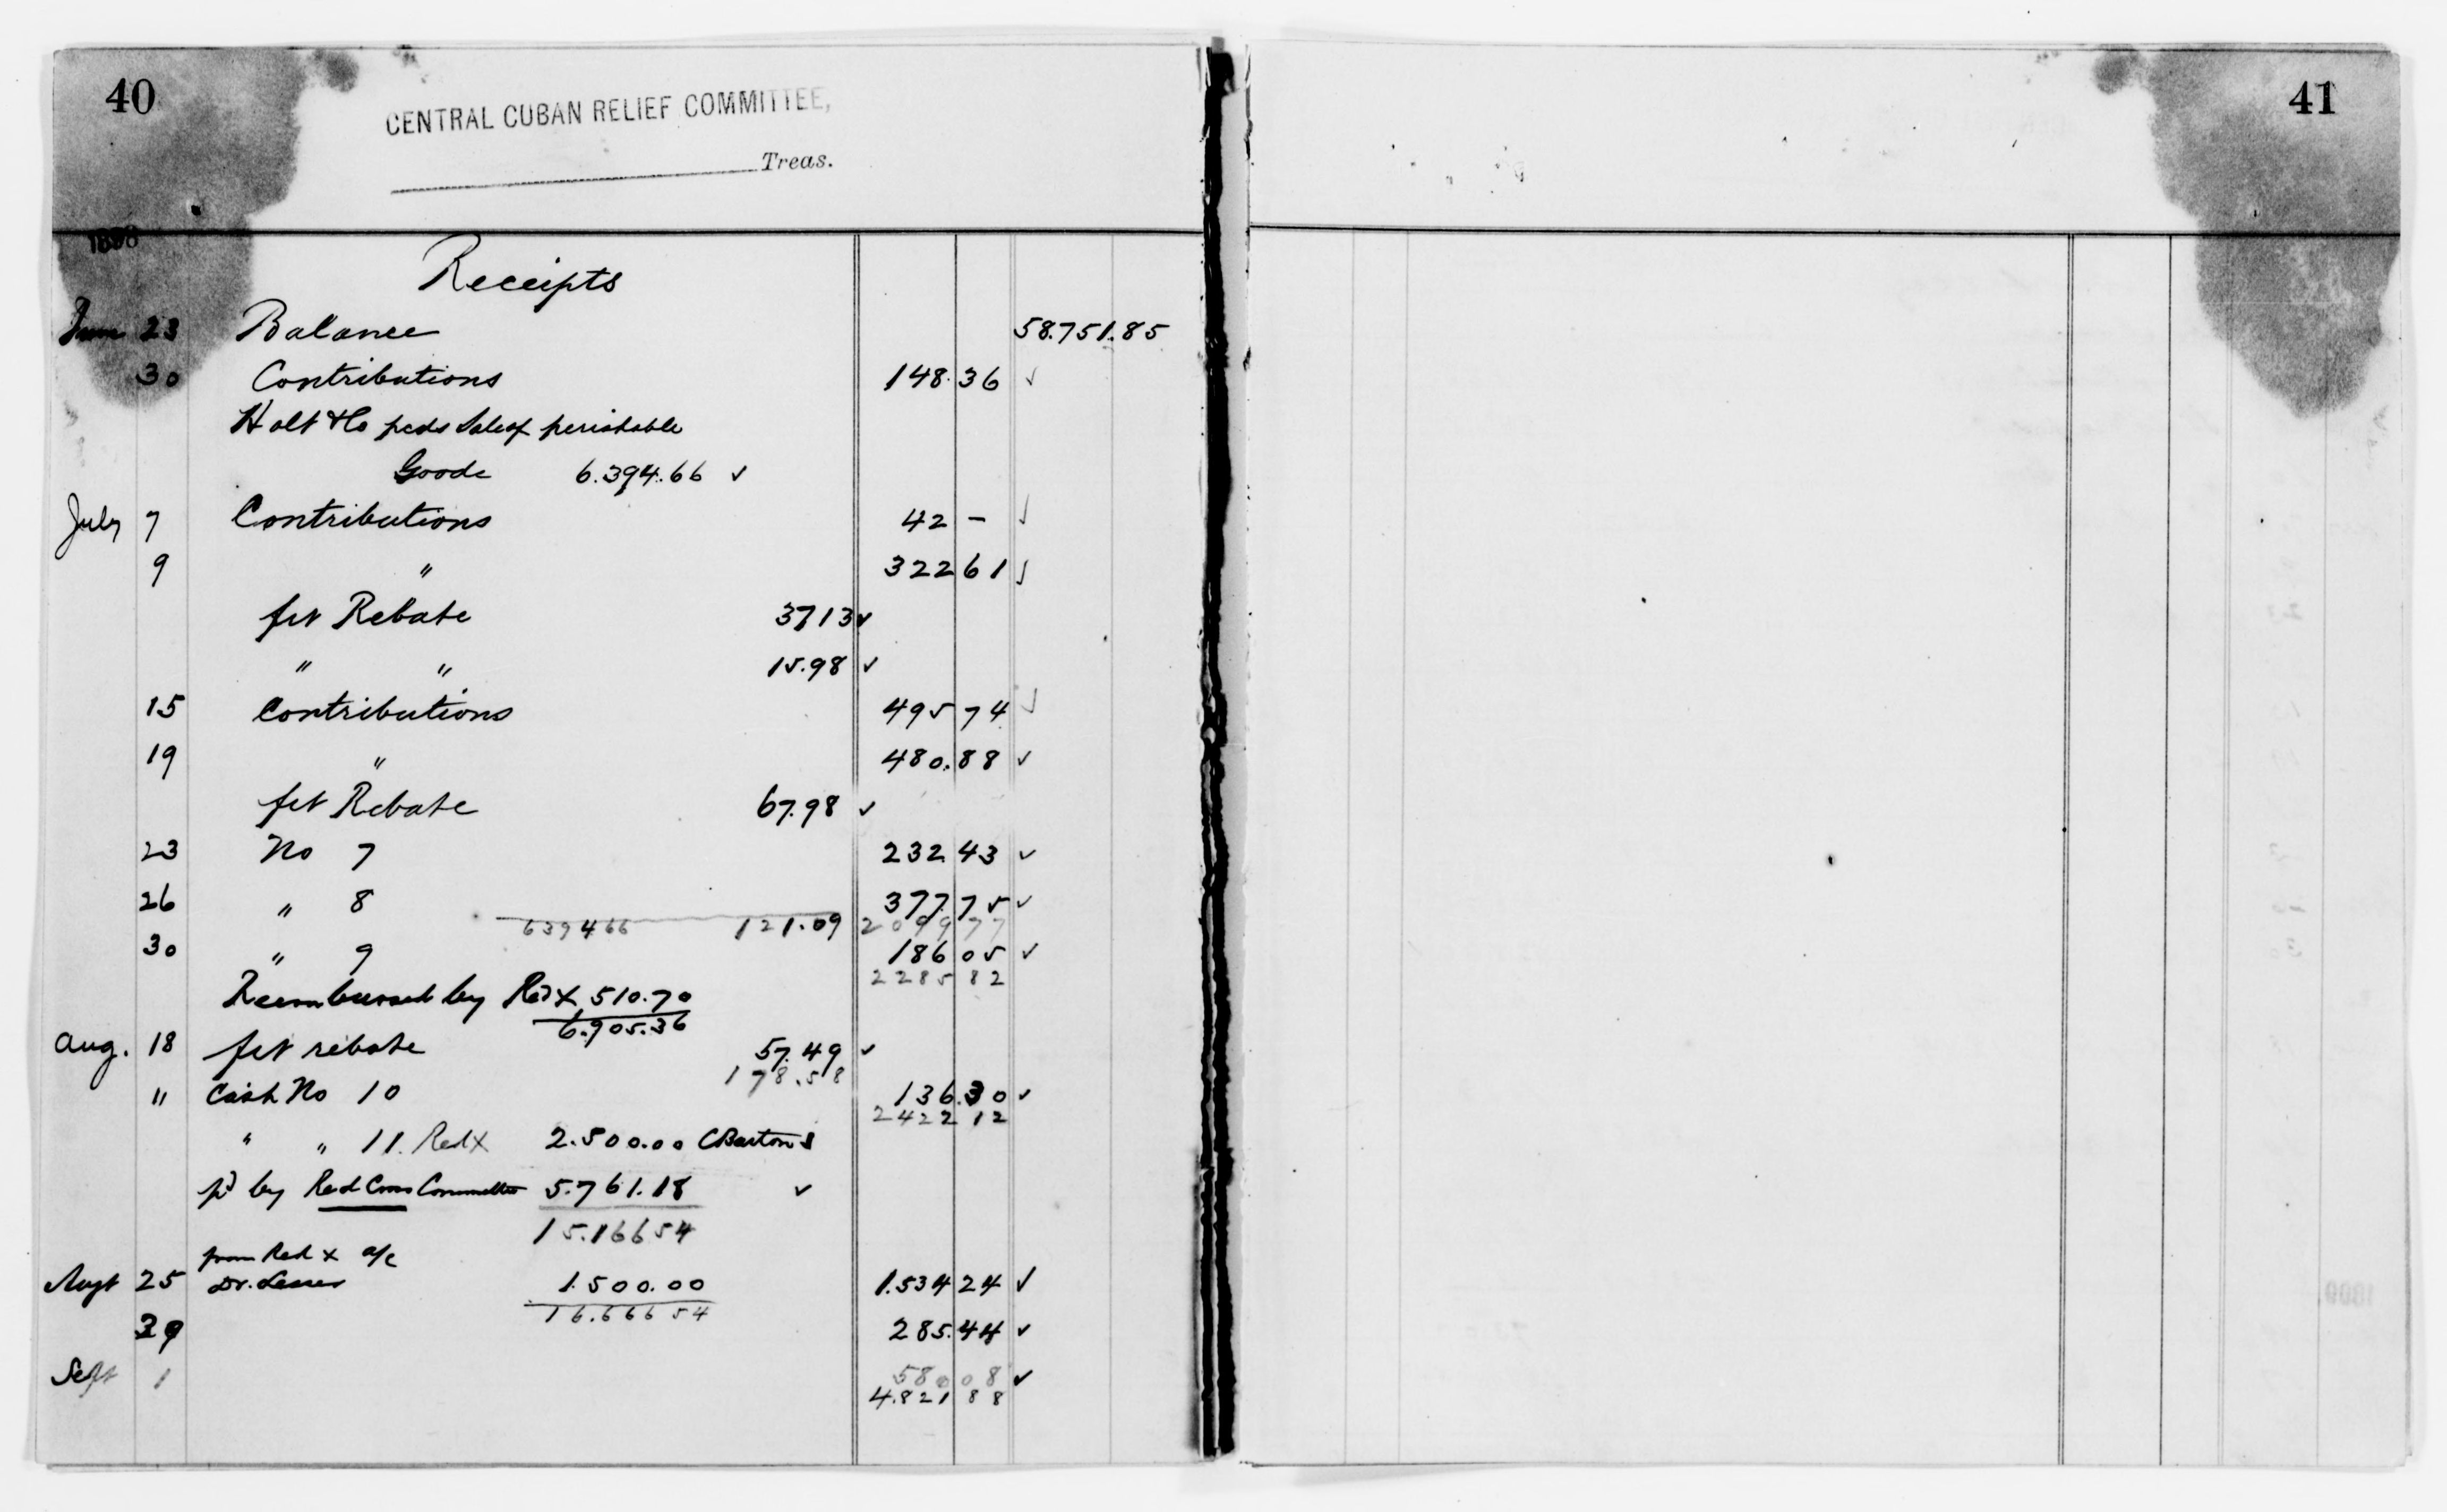 40
CENTRAL CUBAN RELIEF COMMITTEE,
Treas.
1898
Receipts
June 23 Balance 58.751.85
30 Contributions 148.36 ✓
Holt & Co pcds Sale of perishable
Goods 6.394.66 ✓
July 7 Contributions 42 – ✓
9 " 322 61 ✓
frt Rebate 37 13 ✓
" " 15.98 ✓
15 Contributions 495 74 ✓
19 " 480.88 ✓
frt Rebate 67.98 ✓
23 No 7 232.43 ✓
26 " 8 377.75 ✓
6394 66 121.09 2099 77
30 " 9 186 05 ✓
2285 82
Reembursed by Red X 510.70
6.905.36
Aug. 18 frt rebate 57.49 ✓
178.58
" Cash No 10 136.30 ✓
2422 12
" " 11. Red X 2.500.00 CBarton ✓
pd by Red Cross Committee 5.761.18 ✓
15.166 54
from Red X a/c
Augt 25 Dr. Lesser 1.500.00 1.534 24 ✓
16.666 54
29 285.44 ✓
Sept 1 580 08 ✓
4.821 88
41